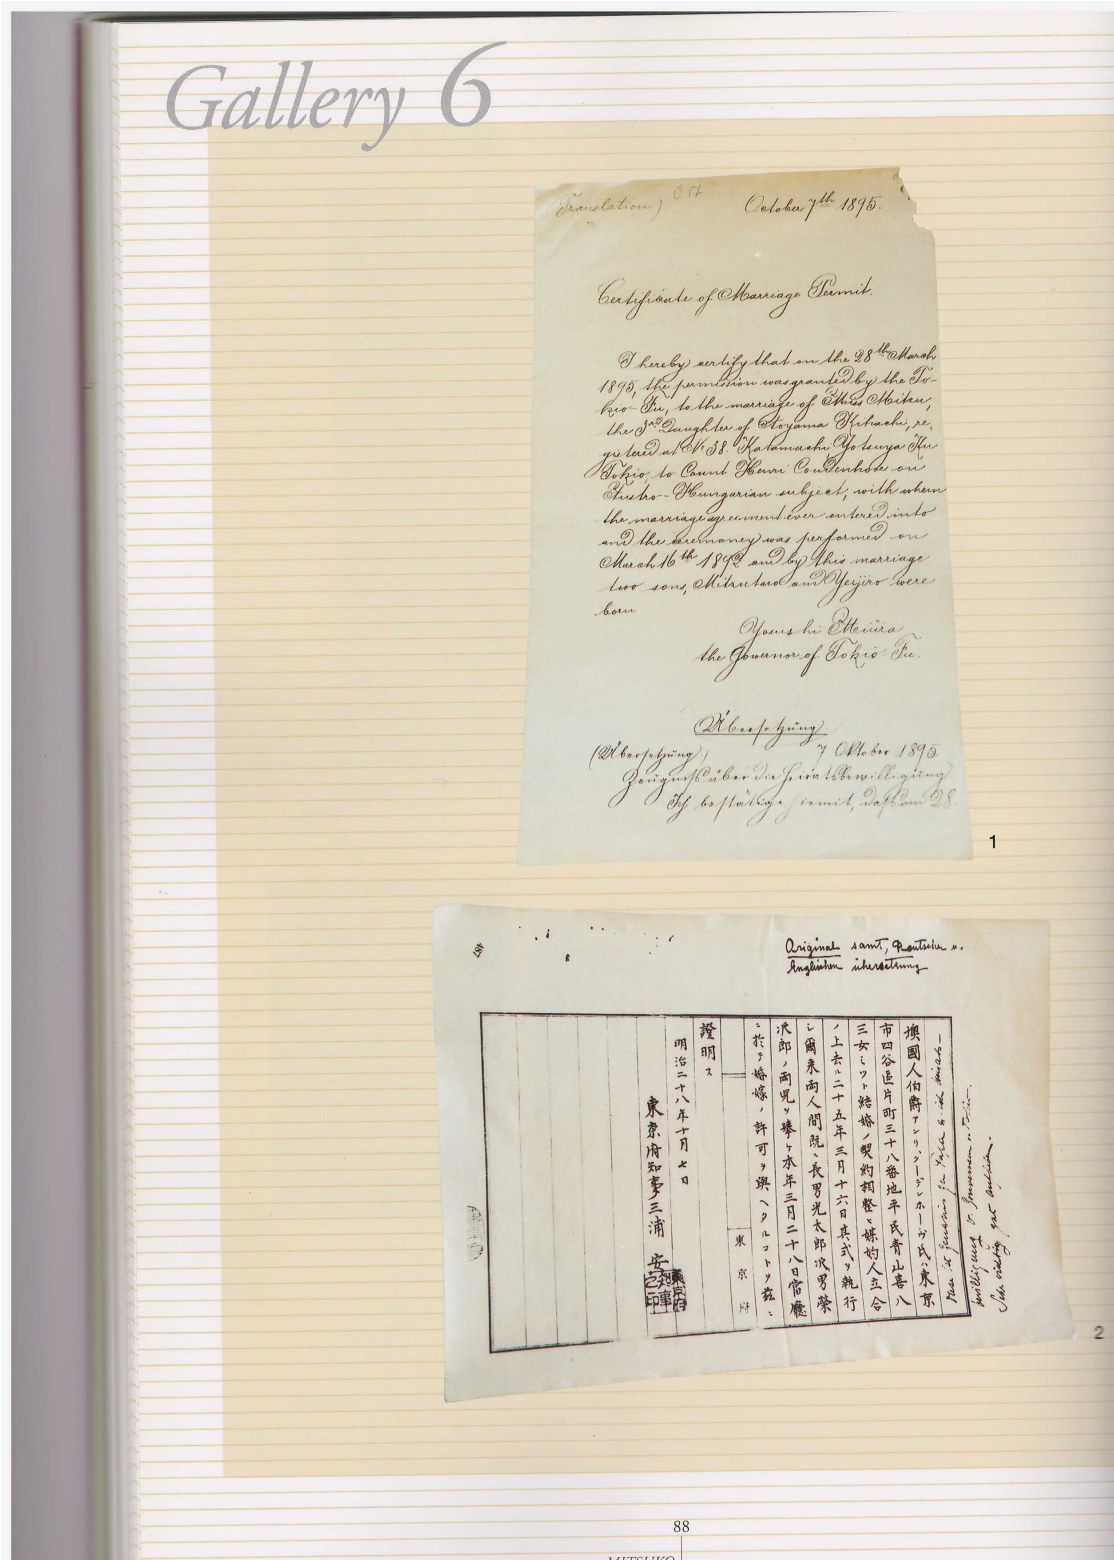 Gallery 6
(Translation)
October 7th 1895.
Certificate of Marriage Permit.
I hereby certify that on the 28th March
1895, the permission was granted by the To-
kio-Fu, to the marriage of Miss Mitsu,
the 3rd Daughter of Aoyama Kihachi, re-
gistered at No 38. Katamachi Yotsuya Ku
Tokio, to Count Henri Coudenhove an
Austro-Hungarian subject, with whom
the marriage agreement ever entered into
and the ceremoney was performed on
March 16th 1892 and by this marriage
two sons, Mitsutaro and Yeijiro were
born
Yasushi Miura
the Gowernor of Tokio Fu.
Übersetzung.
(Übersetzung) 7 Oktober 1895
Zeugniss über die Heiratsbewilligung
Ich bestätige hiemit, dass am 28.
1
Original samt, Deutscher u.
Englischen übersetzung
墺國人伯爵アンリ、クーデンホーヴ氏ハ東京
市四谷區片町三十八番地平民青山喜八
三女ミツト結婚ノ契約相整ヒ媒妁人立合
ノ上去ル二十五年三月十六日其式ヲ執行
シ爾来両人間既ニ長男光太郎次男榮
次郎ノ両児ヲ擧ケ本年三月二十八日當廳
ニ於テ婚嫁ノ許可ヲ與ヘタルコトヲ茲ニ
東京府
證明ス
明治二十八年十月七日
東京府知事三浦安
東京府
知事
之印
2
88
MITSUKO